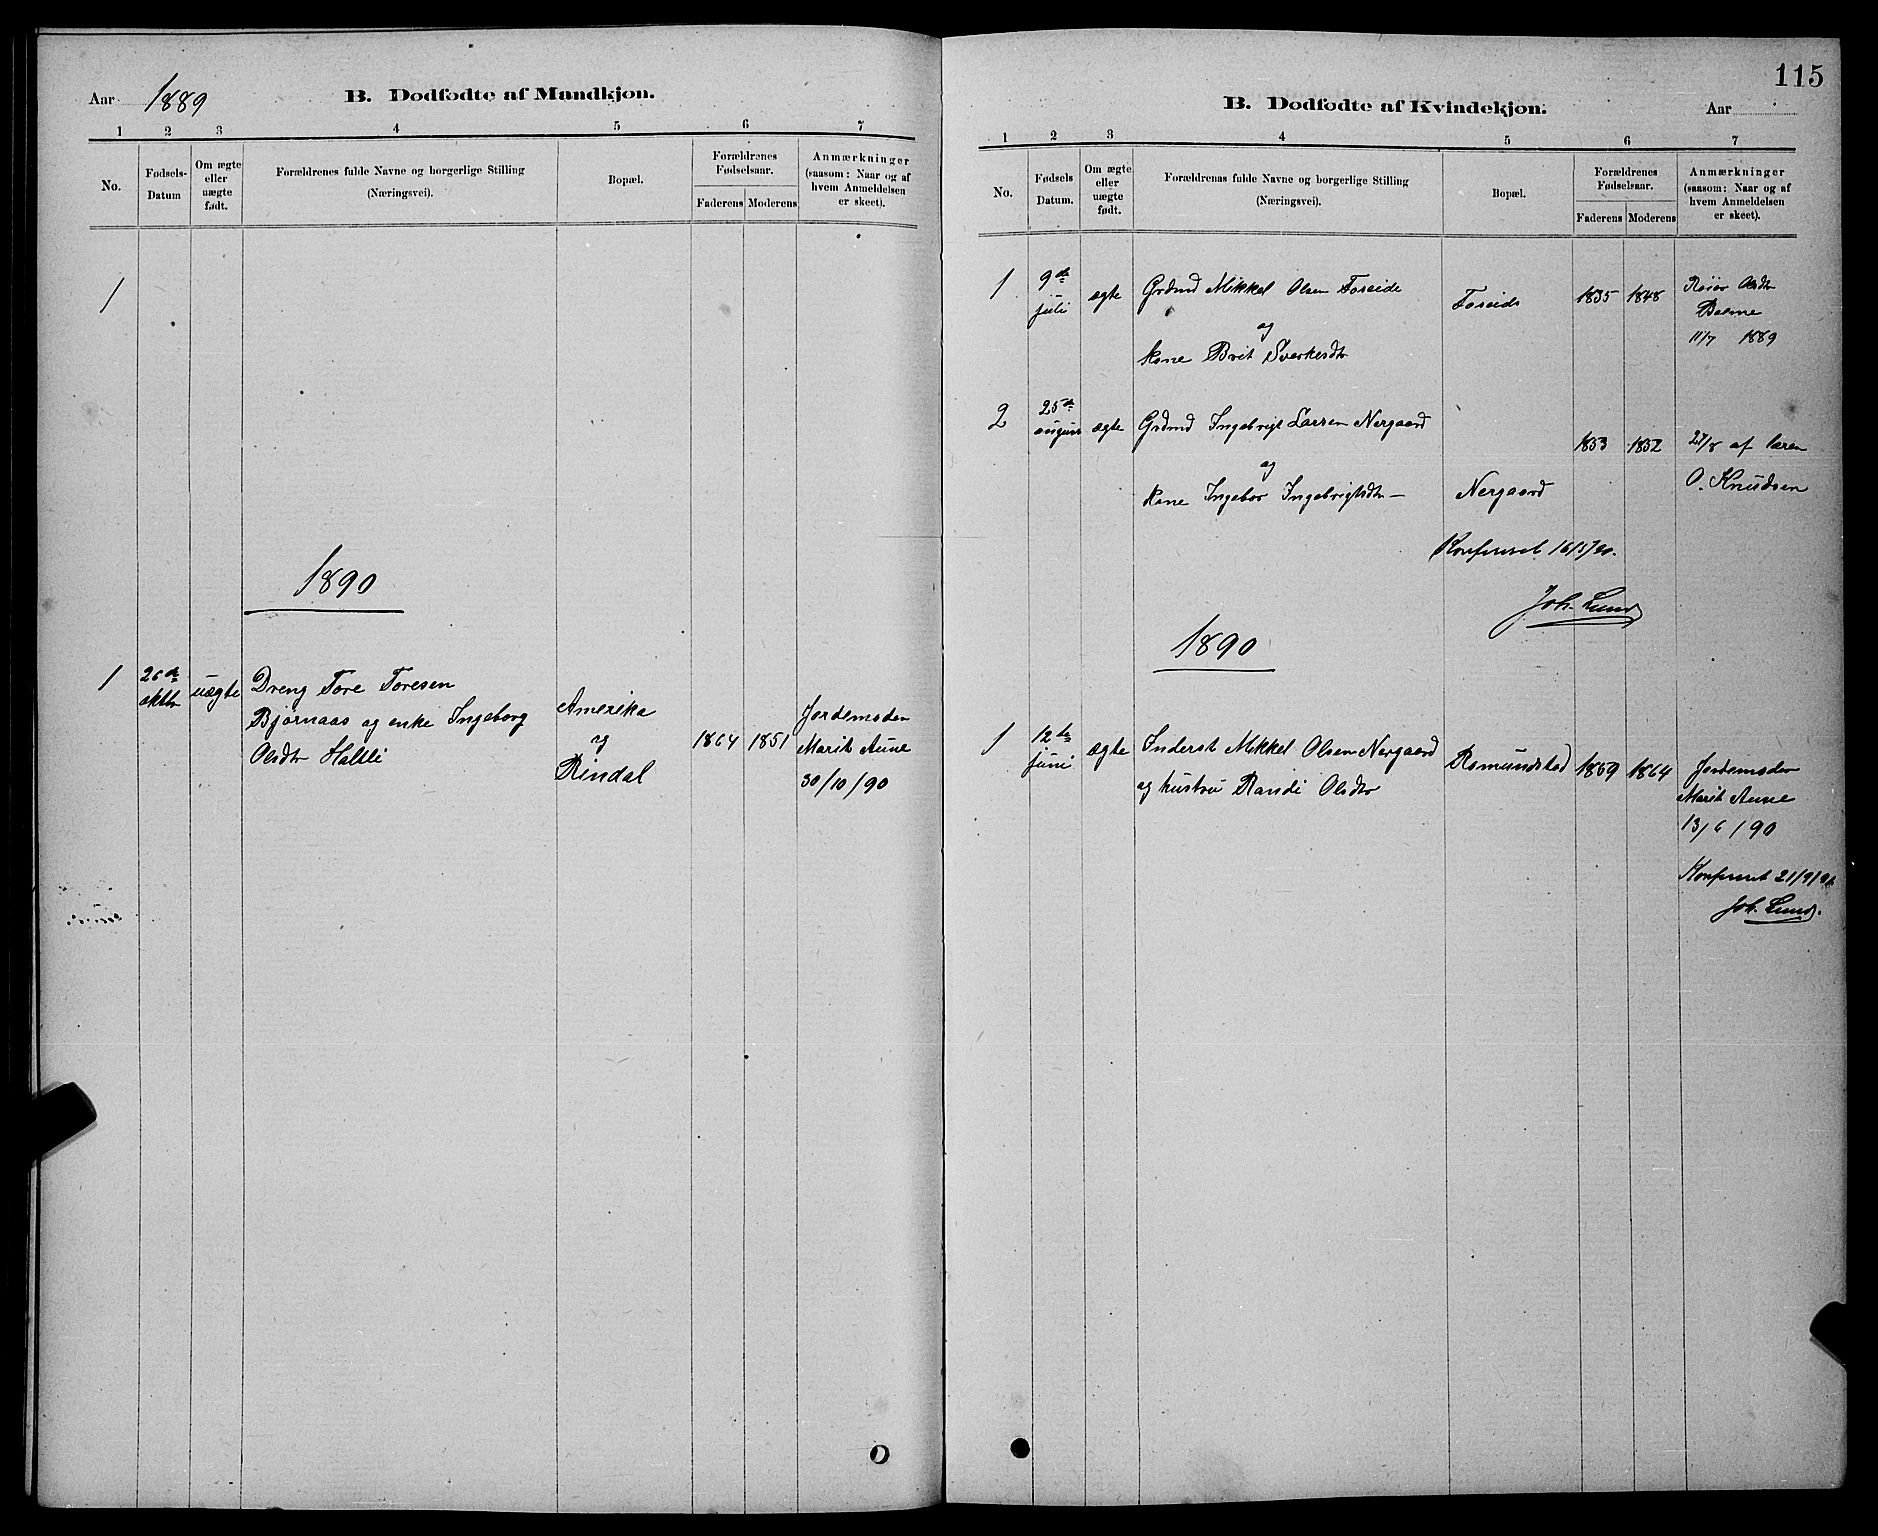 Aar 1889
B. Dødfødte af Mandkjøn.
1 2 3 4 5 6 7
No.
Fødsels-
Datum
Om ægte
eller
uægte
født.
Forældrenes fulde Navne og borgerlige Stilling
(Næringsvei).
Bopæl.
Forældrenes
Fødselsaar.
Faderens Moderens
Anmærkninger
(saasom: Naar og af
hvem Anmeldelsen
er skeet).
1
1890
1
26de
oktbr
uægte
Dreng Tore Toresen
Bjørnaas og enke Ingeborg
Olsdtr Haltli
Amerika
og
Rindal
1864 1851
Jordemoder
Marit Aune
30/10/90
115
B. Dødfødte af Kvindekjøn.
Aar
1 2 3 4 5 6 7
No.
Fødsels
Datum.
Om ægte
eller
uægte
født.
Forældrenas fulde Navne og borgerlige Stilling
(Næringsvei).
Bopæl.
Forældrenes
Fødselsaar.
Faderens Moderens
Anmærkninger
(saasom: Naar og af
hvem Anmeldelsen
er skeet).
1
9de
juli
ægte
Grdmd Mikkel Olsen Foseide
og
kone Brit Sverkesdtr
Foseide
1835 1848
Olsdtr
Bolme
11/7 1889
2
25de
august
ægte
Grdmd Ingebrigt Larsen Nergaard
og
kone Ingebor Ingebrigtsdtr
Nergaard
1853 1852
27/8 af læren
O. Knudsen
Konfereret 16/5/90.
Joh. Lund
1890
1
12te
juni
ægte
Inderst Mikkel Olsen Nergaard
og hustru Randi Olsdtr
Romundstad
1859 1864
Jordemoder
Marit Aune
13/6/90
Konfereret 21/9/91
Joh. Lund.